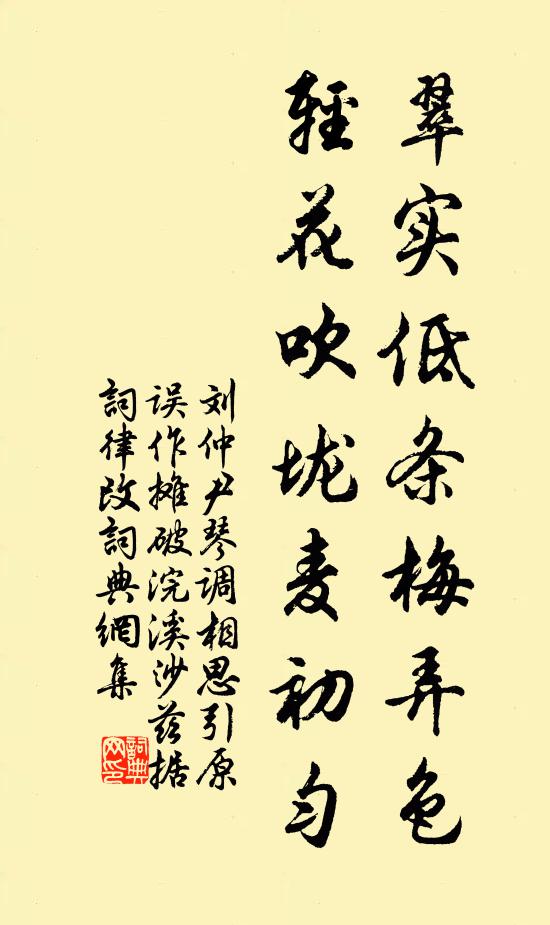 翠实低条梅弄色
轻花吹垅麦初匀
刘仲尹琴调相思引原
误作摊破浣溪沙兹据
詞律改詞典網集
詞典
网印